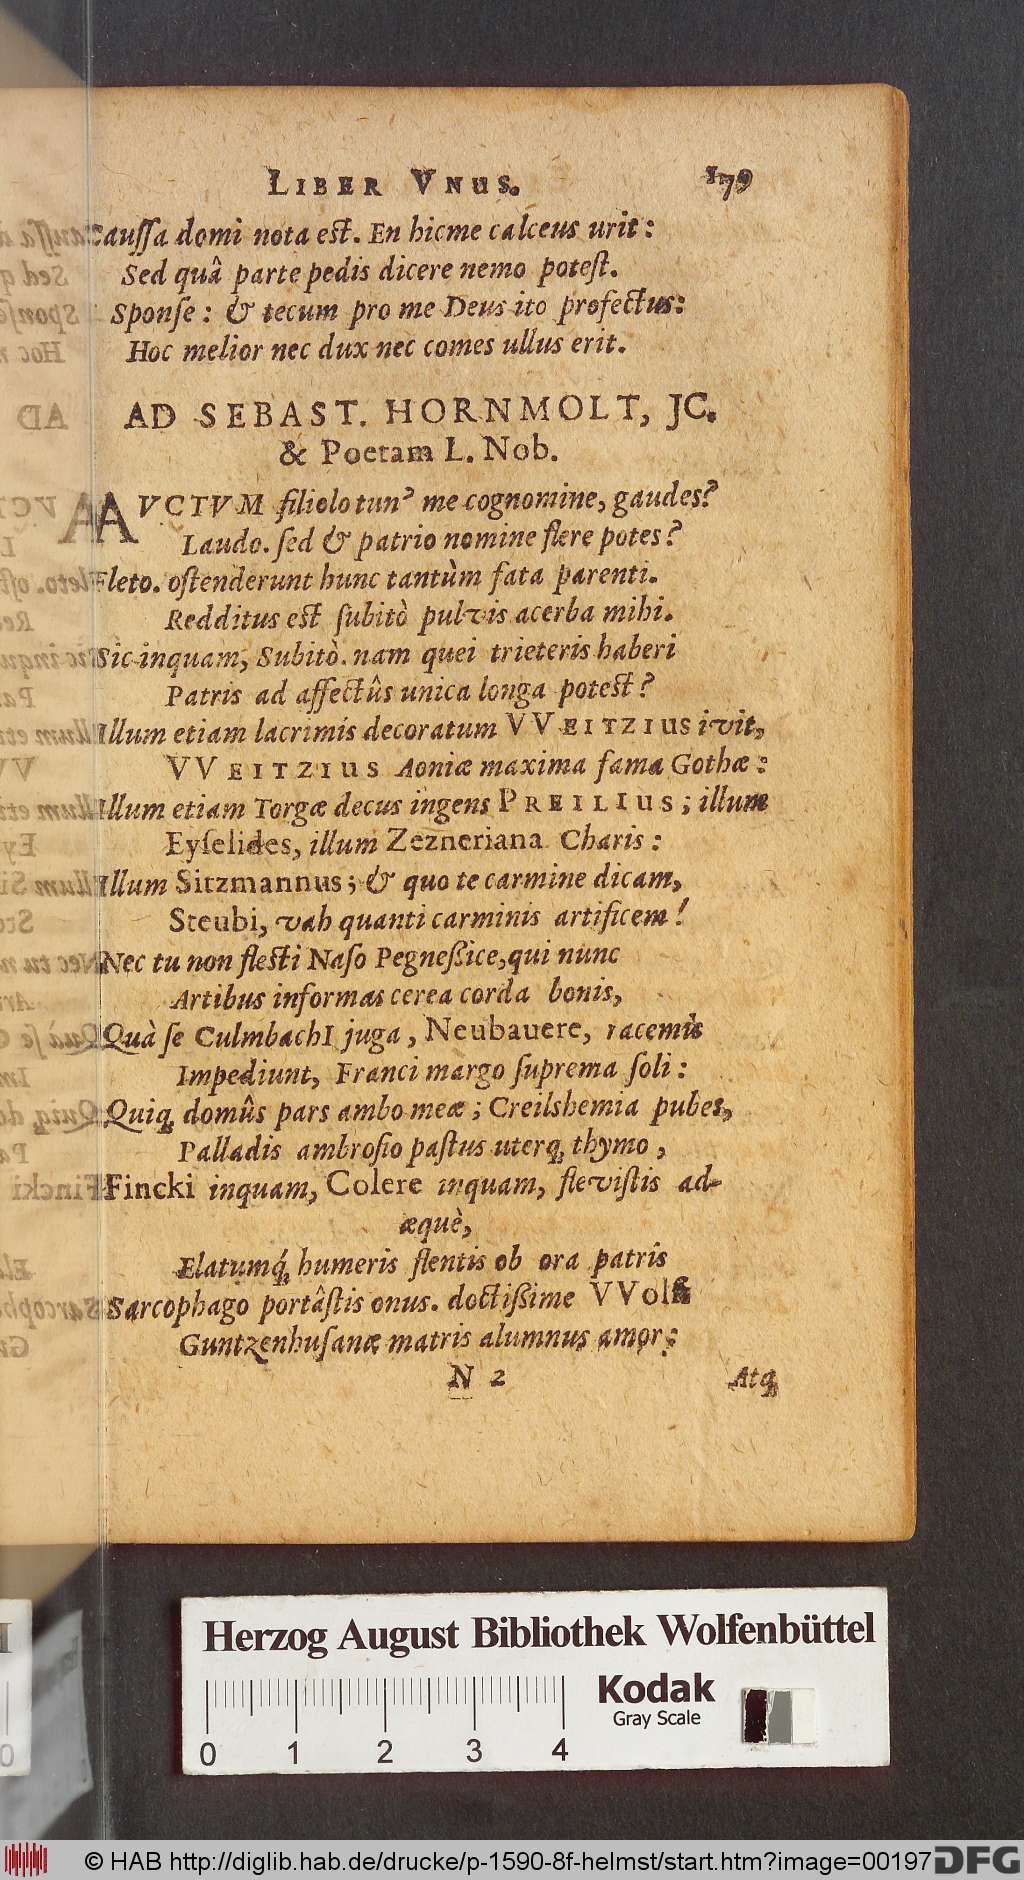 LIBER VNUS. 179
Caussa domi nota est. En hicme calceus urit:
Sed quâ parte pedis dicere nemo potest.
Sponse: & tecum pro me Deus ito profectus:
Hoc melior nec dux nec comes ullus erit.
AD SEBAST. HORNMOLT, JC.
& Poetam L. Nob.
AVCTVM filiolo tun' me cognomine, gaudes?
Laudo. sed & patrio nomine flere potes?
Fleto. ostenderunt hunc tantùm fata parenti.
Redditus est subitò pulvis acerba mihi.
Sic inquam, Subitò. nam quei trieteris haberi
Patris ad affectûs unica longa potest?
Illum etiam lacrimis decoratum VVEITZIUS ivit,
VVEITZIUS Aoniæ maxima fama Gothæ:
Illum etiam Torgæ decus ingens PREILIUS; illum
Eyselides, illum Zezneriana Charis:
Illum Sitzmannus; & quo te carmine dicam,
Steubi, vah quanti carminis artificem!
Nec tu non flecti Naso Pegneßice, qui nunc
Artibus informas cerea corda bonis,
Quà se Culmbachî juga, Neubauere, racemis
Impediunt, Franci margo suprema soli:
Quiq; domûs pars ambo meæ; Creilshemia pubes,
Palladis ambrosio pastus uterq; thymo,
Fincki inquam, Colere inquam, flevistis ad-
æquè,
Elatumq́; humeris flentis ob ora patris
Sarcophago portâstis onus. doctißime VVolfi
Guntzenhusanæ matris alumnus amor:
N 2 Atq;
Herzog August Bibliothek Wolfenbüttel
Kodak
Gray Scale
0 1 2 3 4
© HAB http://diglib.hab.de/drucke/p-1590-8f-helmst/start.htm?image=00197
DFG